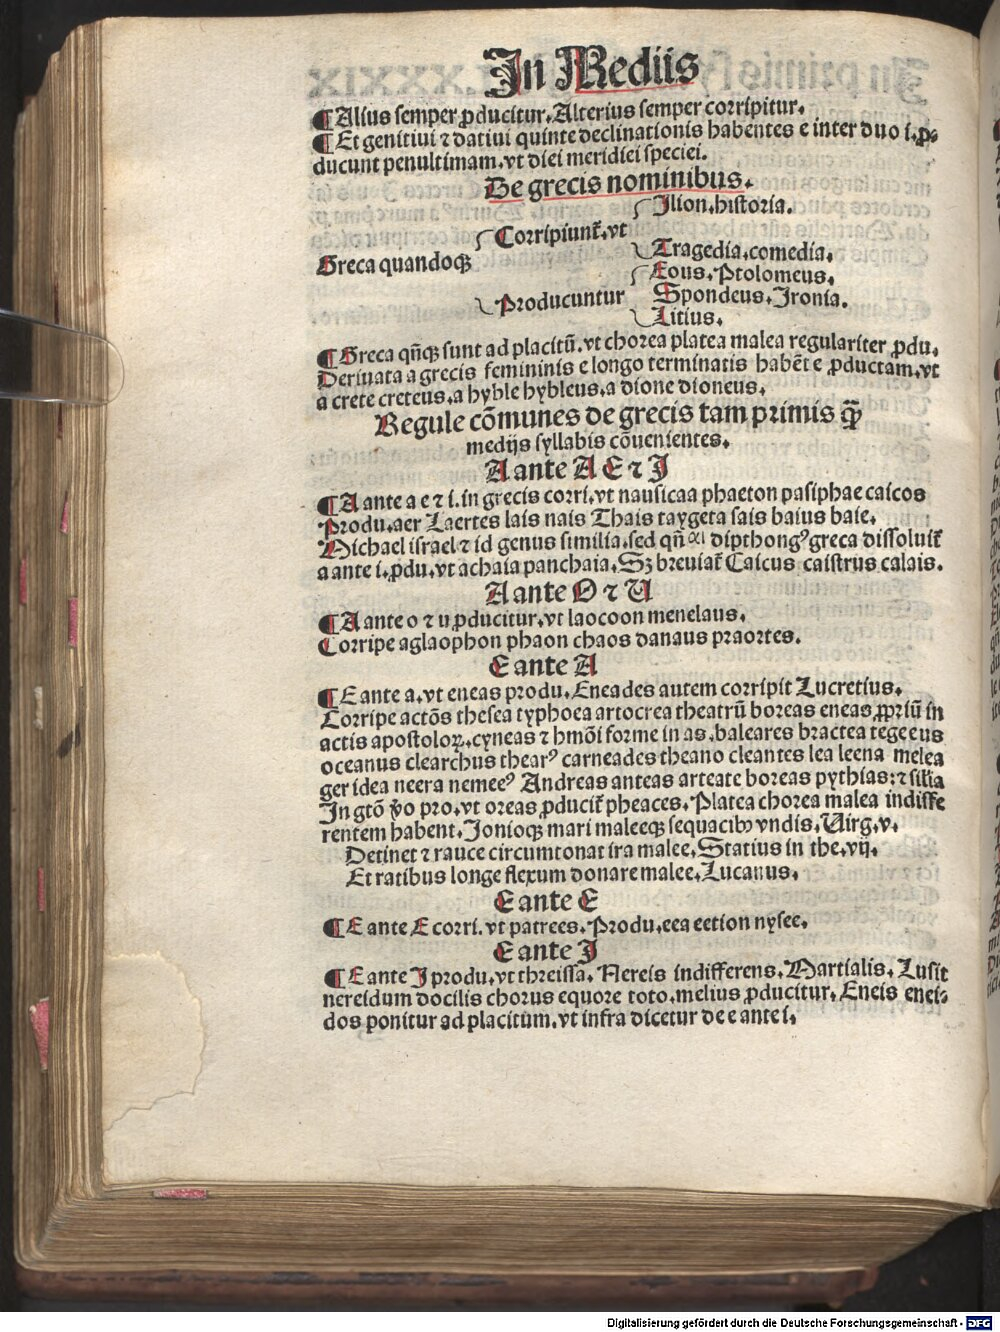 In Mediis
¶Alius semper ꝓducitur. Alterius semper corripitur.
¶Et genitiui ⁊ datiui quinte declinationis habentes e inter duo i. ꝓ-
ducunt penultimam. vt diei meridiei speciei.
De grecis nominibus.
Ilion. historia.
Corripiunt̄. vt
Tragedia. comedia.
Greca quandoqꝫ
Eous. Ptolomeus.
Producuntur Spondeus. Ironia.
Litius.
¶Greca qn̄qꝫ sunt ad placitū. vt chorea platea malea regulariter ꝓdu.
Deriuata a grecis femininis e longo terminatis habēt e ꝓductam. vt
a crete creteus. a hyble hybleus. a dione dioneus.
Regule cōmunes de grecis tam primis qꝫ̄
medijs syllabis cōuenientes.
A ante A E ⁊ I
¶A ante a e ⁊ i. in grecis corri. vt nausicaa phaeton pasiphae caicos
Produ. aer Laertes lais nais Thais taygeta sais baius baie.
Michael israel ⁊ id genus similia. sed qn̄ ai dipthongꝰ greca dissoluit̄
a ante i. ꝓdu. vt achaia panchaia. Sꝫ breuiat̄ Caicus caistrus calais.
A ante O ⁊ U
¶A ante o ⁊ u ꝓducitur. vt laocoon menelaus.
Corripe aglaophon phaon chaos danaus praortes.
E ante A
¶E ante a. vt eneas produ. Eneades autem corripit Lucretius.
Corripe actōs thesea typhoea artocrea theatrū boreas eneas ꝓpriū in
actis apostoloꝝ. cyneas ⁊ hmōi forme in as. baleares bractea tegeeus
oceanus clearchus thearꝰ carneades theano cleantes lea leena melea
ger idea neera nemeeꝰ Andreas anteas arteate boreas pythias: ⁊ silia
In gtō v̄o pro. vt oreas ꝓducit̄ pheaces. Platea chorea malea indiffe
rentem habent. Ionioqꝫ mari maleeqꝫ sequacibꝫ vndis. Uirg. v.
Detinet ⁊ rauce circumtonat ira malee. Statius in the. vij.
Et ratibus longe flexum donare malee. Lucanus.
E ante E
¶E ante E corri. vt patrees. Produ. eea eetion nysee.
E ante I
¶E ante I produ. vt threissa. Nereis indifferens. Martialis. Lusit
nereidum docilis chorus equore toto. melius ꝓducitur. Eneis enei-
dos ponitur ad placitum. vt infra dicetur de e ante i.
Digitalisierung gefördert durch die Deutsche Forschungsgemeinschaft - DFG